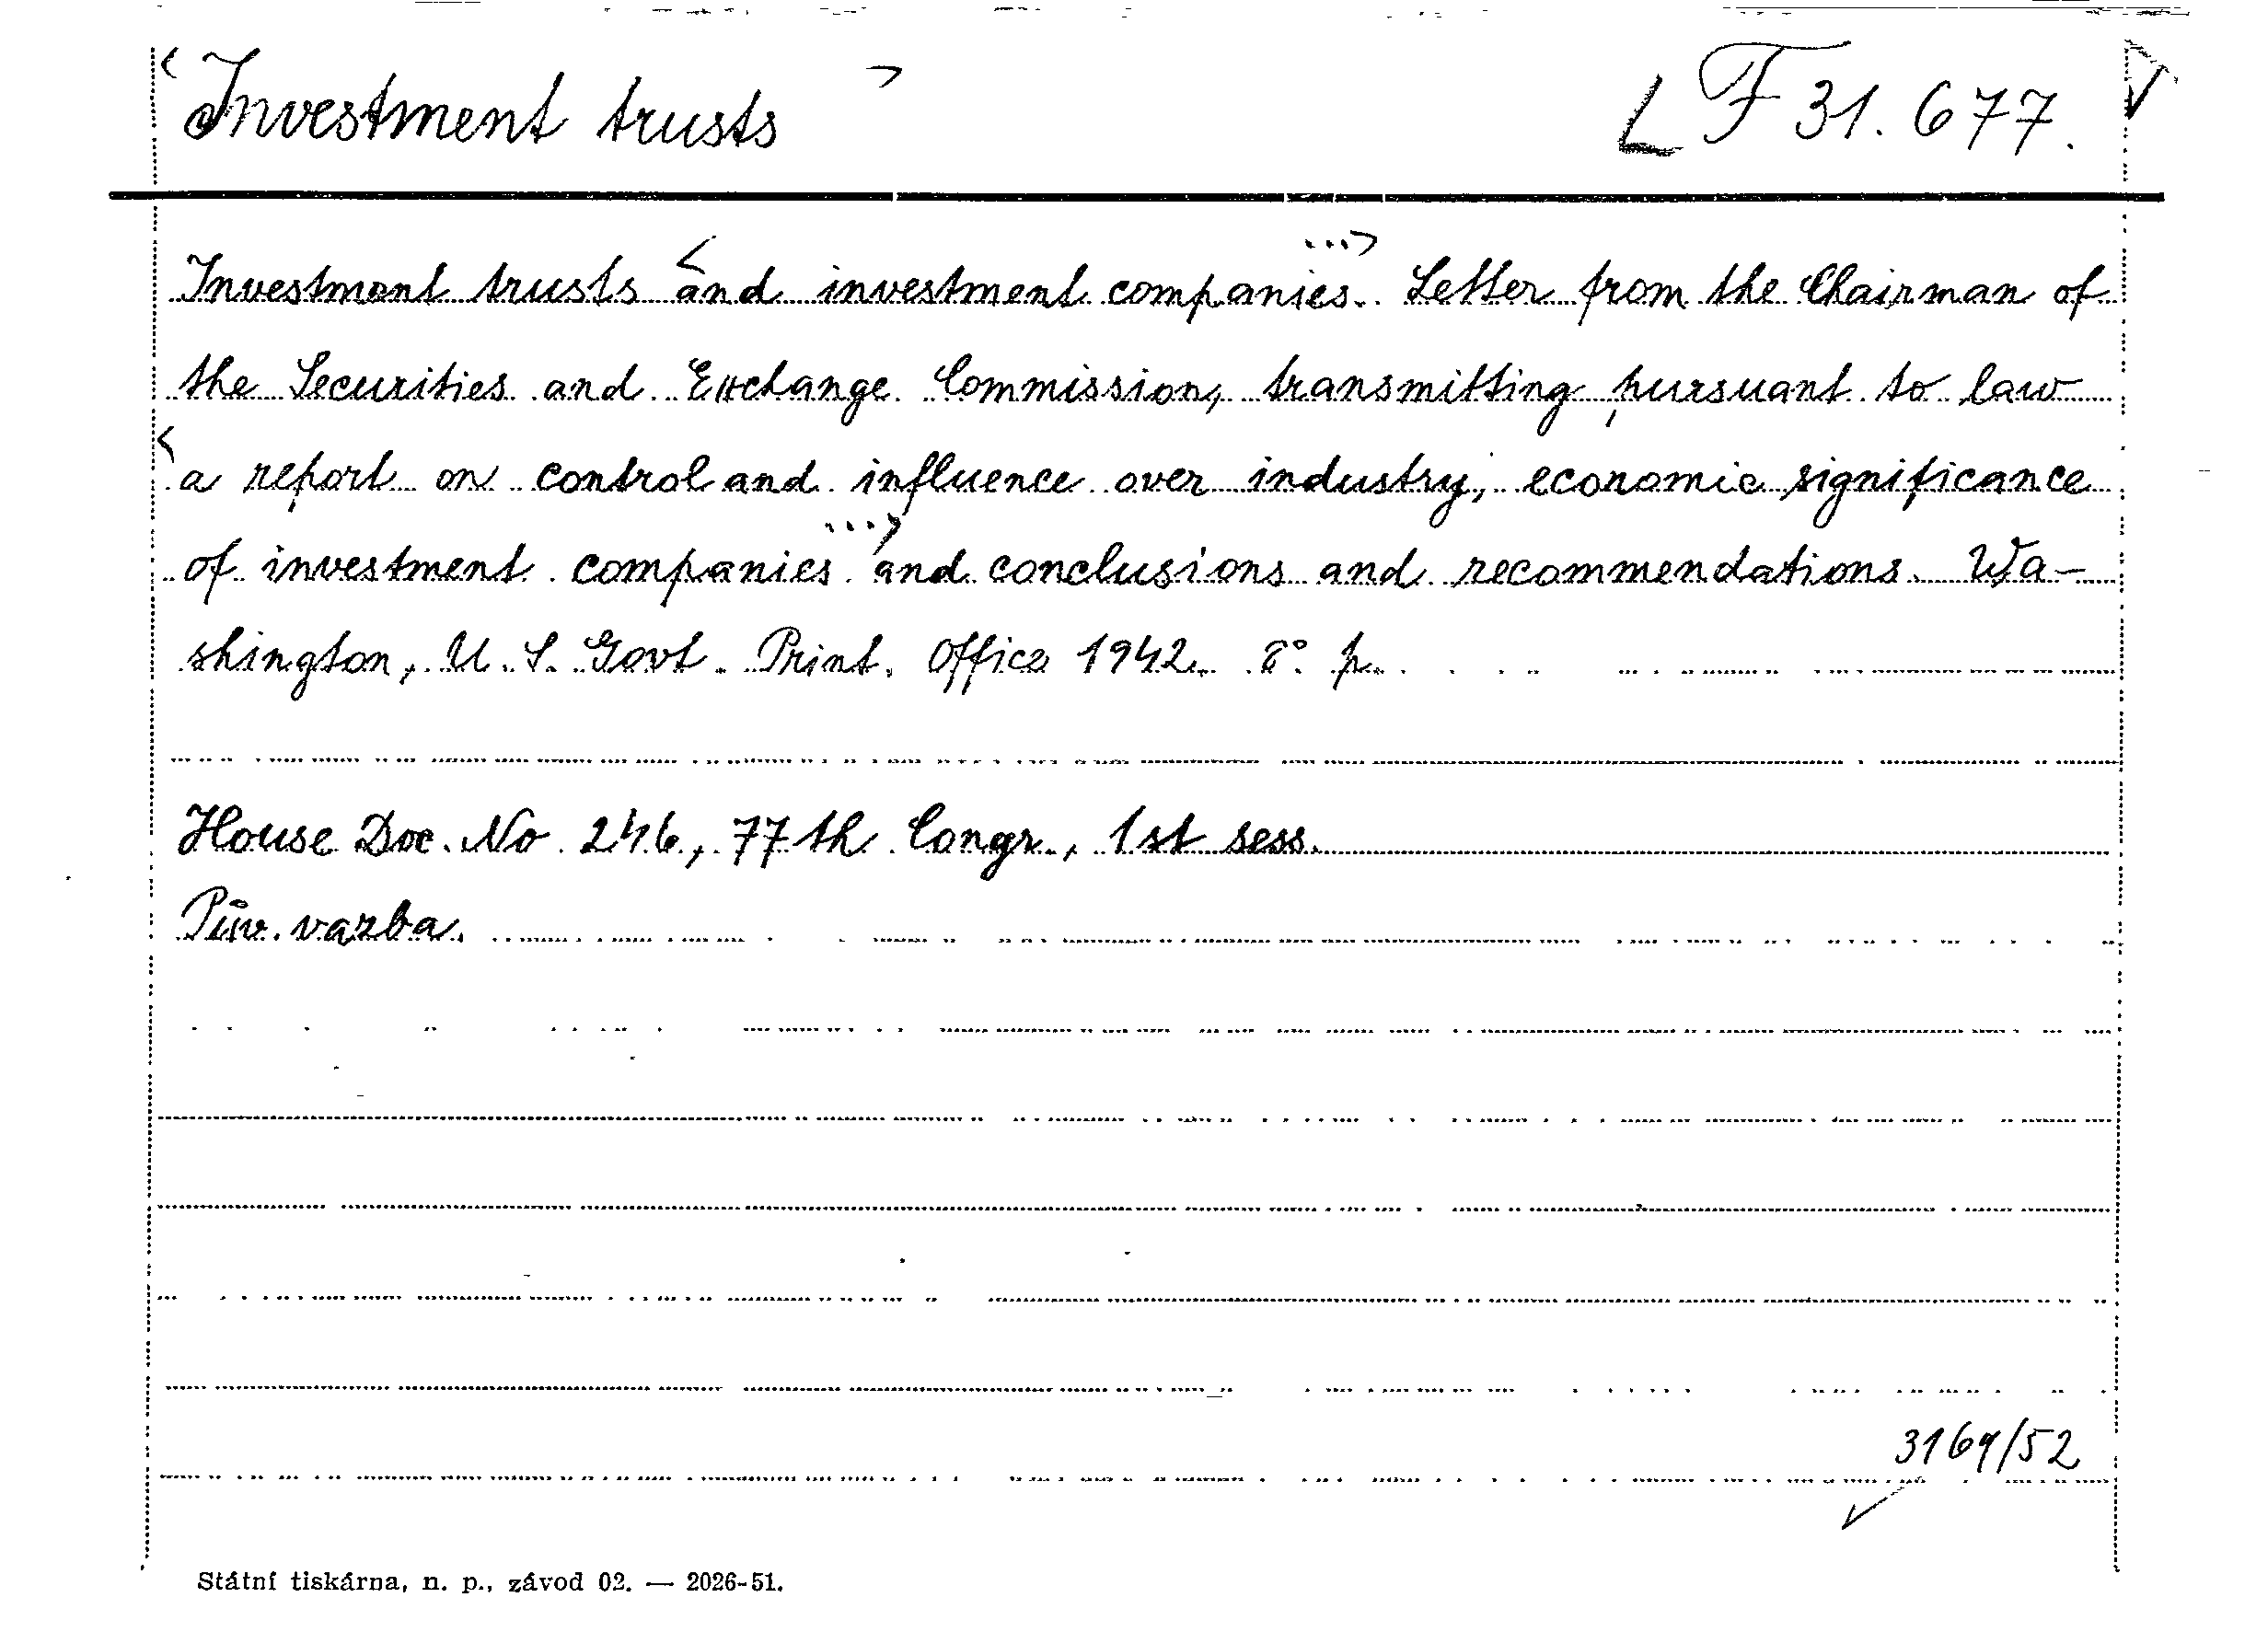 Investment trusts
F 31.677.
Investment trusts and investment companies. Letter from the Chairman of
the Securities and Exchange Commission, transmitting pursuant to law
a report on control and influence over industry, economic significance
of investment companies and conclusions and recommendations. Wa-
shington, U. S. Govt. Print. Office 1942. 8°. p.
House Doc. No 246, 77th Congr., 1st sess.
Pův. vazba.
3169/52
Státní tiskárna, n. p., závod 02. — 2026-51.